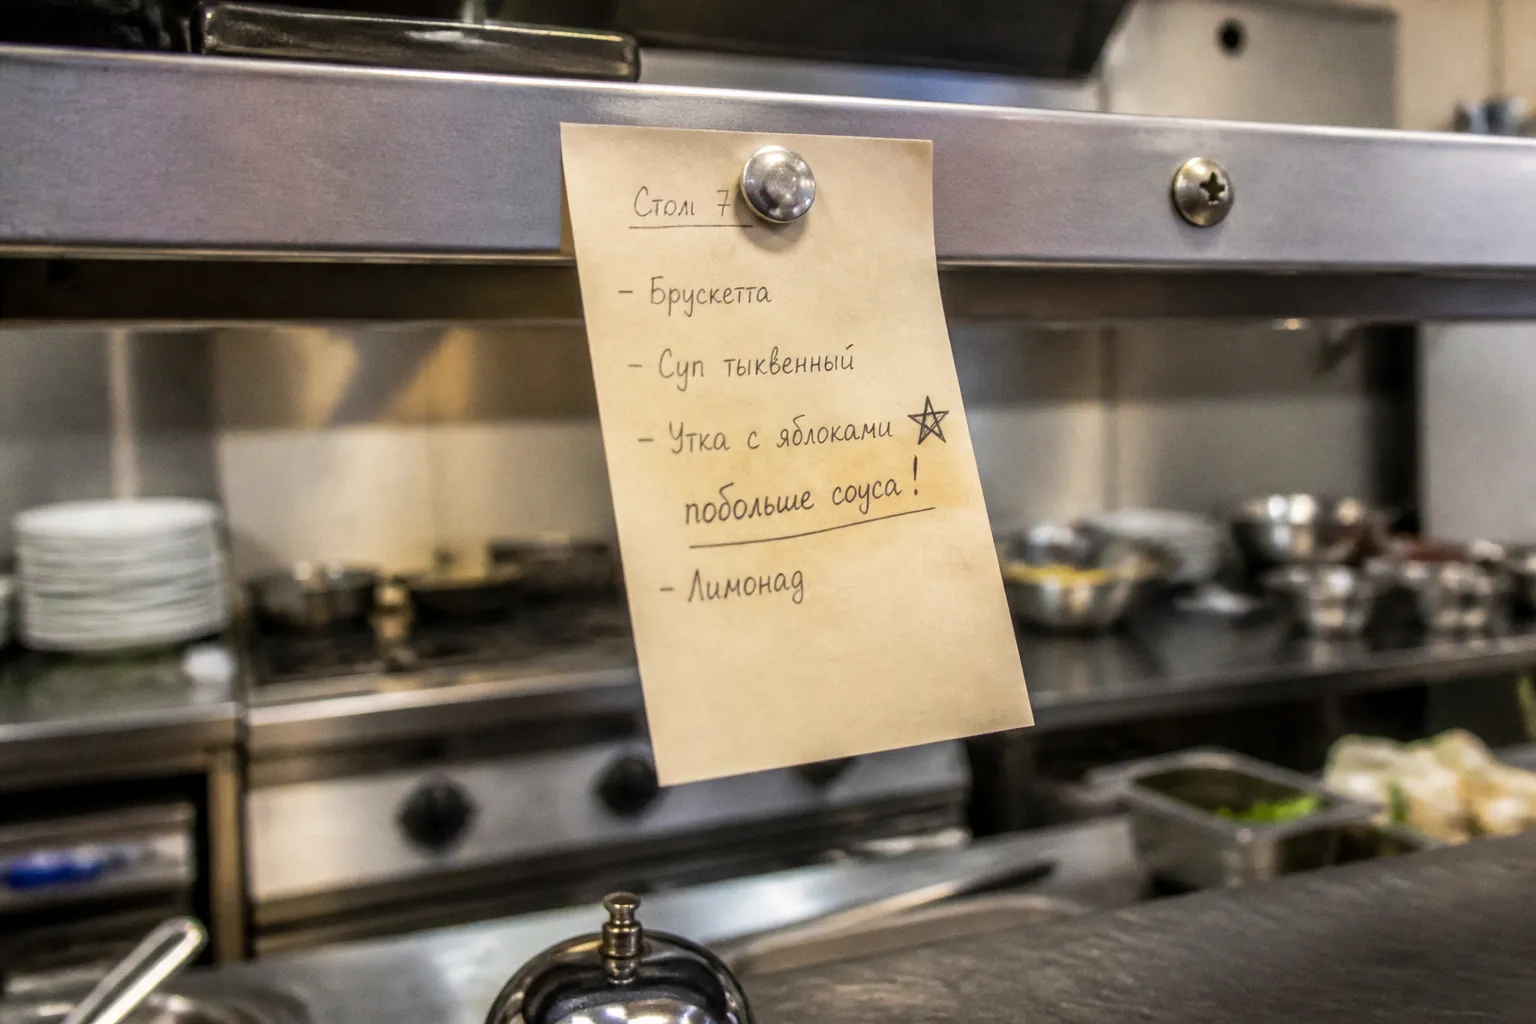 Стол 7
- Брускетта
- Суп тыквенный
- Утка с яблоками ☆
побольше соуса!
- Лимонад